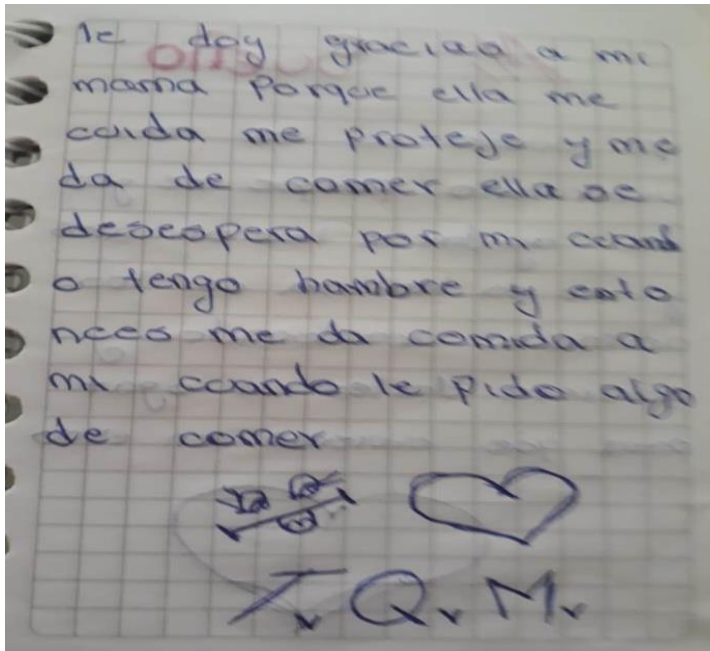 le doy gracias a mi
mama porque ella me
cuida me proteje y me
da de comer ella se
desespera por mi cuand
o tengo hambre y ento
nces me da comida a
mi cuando le pido algo
de comer
T. Q. M.